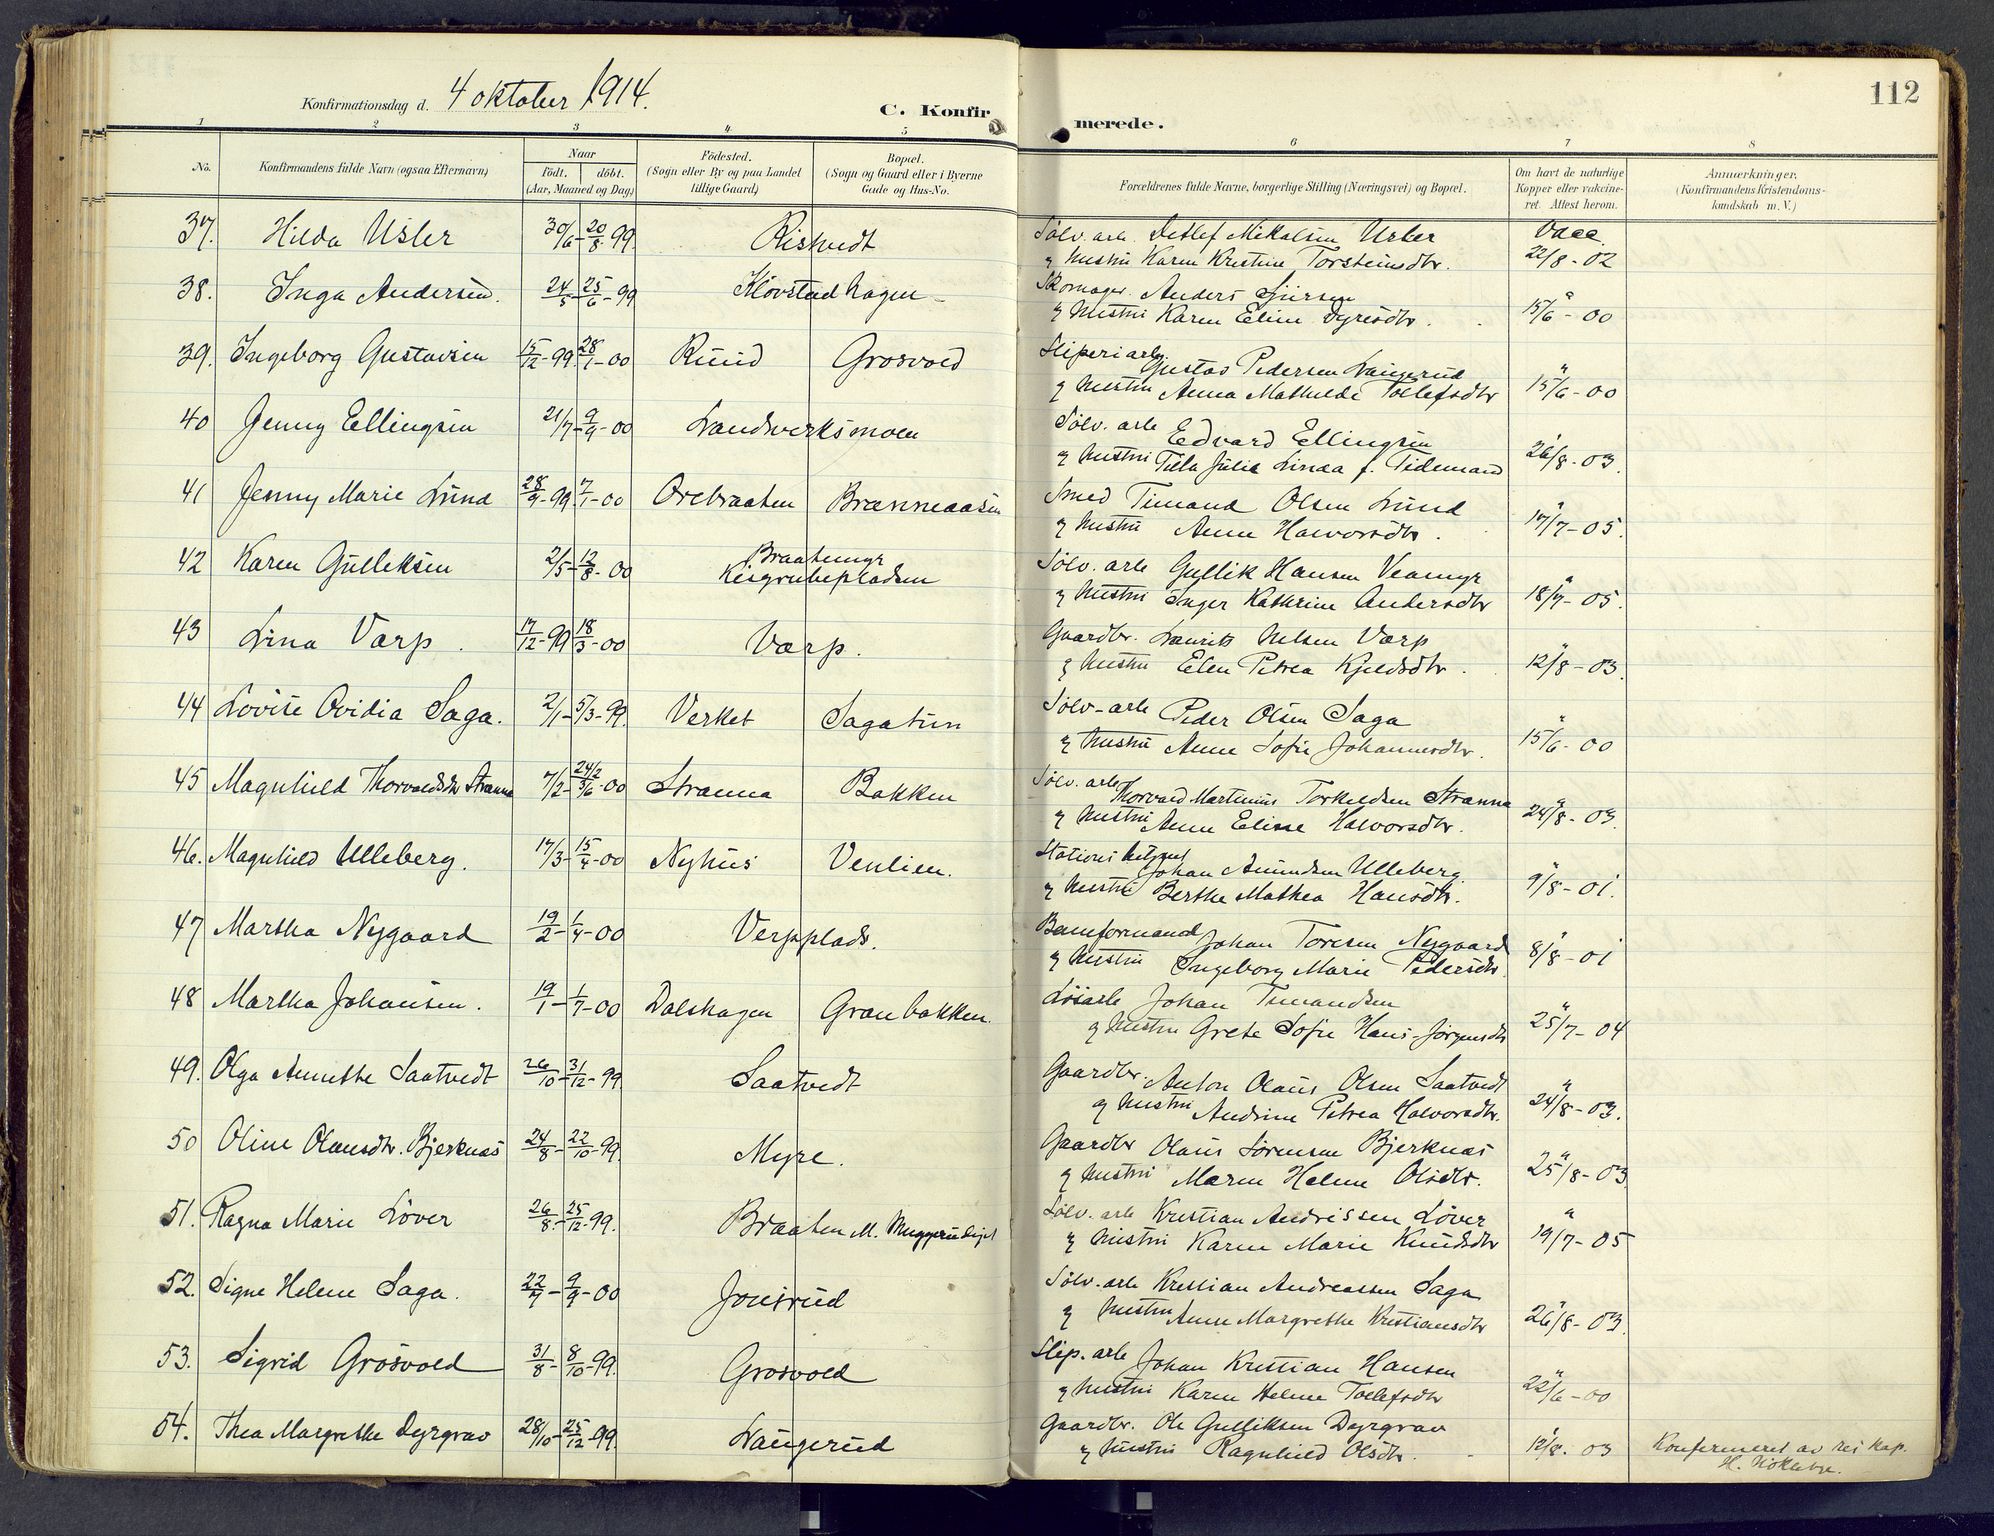 112
Konfirmationsdag d. 4 oktober 1914.
C. Konfirmerede.
1 2 3 4 5 6 7 8
No.
Konfirmandens fulde Navn (ogsaa Efternavn)
Naar
födt. döbt.
(Aar, Maaned og Dag)
Födested.
(Sogn eller By og paa Landet
tillige Gaard)
Bopæl.
(Sogn og Gaard eller i Byerne
Gade og Hus-No.
Forældrenes fulde Navne, borgerlige Stilling (Næringsvei) og Bopæl.
Om havt de naturlige
Kopper eller vaccine-
ret. Attest herom.
Anmærkninger.
(Konfirmandens Kristendoms-
kundskab m. V.)
37. Hilda Usler 30/6 - 20/8 - 99. Ristvedt Sølv. arb. Detlef Mikalsen Usler Vacc.
og Hustru Karen Kristine Torsteinsdtr. 22/8 - 02
38. Inga Andersen. 24/5 - 25/6 - 99 Kløvstadhagen Skomager Anders
og Hustru Karen Eline Dyresdtr. 15/6 - 00
39. Ingeborg Gustavsen 15/12 - 99. 28/1 - 00 Ruud Grosvold Sliperiarb.
Gustav Pedersen Langerud
og Hustru Anna Mathilde Tollefsdtr 15/6 - 00
40 Jenny Ellingsen 21/7 - 9/9 - 00 Landverksmoen Sølv. arb Edvard Ellingsen
og Hustru Tilla Julie Linda f. Tidemand 26/8 - 03.
41 Jenny Marie Lund 28/9 - 99. 7/1 - 00 Orebraaten Brænneaasen Smed Timand Olsen Lund
og Hustru Anne Halvorsdtr. 17/7 - 05.
42 Karen Gulliksen 2/5 - 12/8 - 00 Braatemyr
Kisgrubepladsen Sølv. arb Gullik Hansen Veamyr
og Hustru Inger Kathrine Andersdtr 18/7 - 05.
43 Lina Værp. 17/12 - 99 18/3 - 00 Værp. Gaardbr. Laurits Nilsen Værp
og Hustru Elen Petrea Kjeldsdtr. 12/8 - 03.
44 Lovise Ovidia Saga. 2/1 - 5/3 - 99. Verket Sagatun Sølv-arb Peder Olsen Saga
og Hustru Anne Sofie Johannesdtr. 15/6 - 00
45 Magnhild Thorvaldsdtr Stranna 7/2 - 24/2 3/6 - 00 Stranna Bakken Sølv. arb
Thorvald Martinius Torkildsen Stranna
og Hustru Anne Elisse Halvorsdtr. 24/8 - 03.
46. Magnhild Ulleberg. 17/3 - 15/4 - 00 Nyhus Venlien. Stations betjent
Johan Amundsen Ulleberg.
og Hustru Berthe Mathea Hansdtr. 9/8 - 01.
47 Martha Nygaard 19/2 - 1/4 - 00 Verpplads. Banformand
Johan Toresen Nygaard
og Hustru Ingeborg Marie Pedersdtr. 8/8 - 01
48 Martha Johansen. 19/1 - 1/7 - 00 Dalshagen Granbakken. Løsarb Johan Timandsen
og Hustru Grete Sofie Hans-Jørgensdtr 25/7 - 04
49. Olga Annette Saatvedt 26/10 - 31/12 - 99. Saatvedt Gaardbr. Anton Olaus Olsen Saatvedt
og Hustru Andrine Petrea Halvorsdtr. 24/8 - 03.
50 Oline Olausdtr. Bjerknæs 24/8 - 22/10 - 99. Myre. Gaardbr Olaus Sørensen Bjerknæs
og Hustru Maren Helene Olsdtr. 25/8 - 03
51. Ragna Marie Løver 26/8 - 25/12 - 99. Braaten M. Muggerudeiet Sølv. arb Kristian Andrissen Løver
og Hustru Karen Marie Knudsdtr 19/7 - 05
52. Signe Helene Saga. 22/7 - 9/9 - 00 Jonsrud Sølv. arb Kristian Andreassen Saga
og Hustru Anne Margrethe Kristiansdtr 26/8 - 03.
53. Sigrid Grosvold 31/8 - 8/10 - 99. Grosvold Slip. arb Johan Kristian Hansen
og Hustru Karen Helene Tollefsdtr 22/6 - 00
54. Thea Margrethe Dyrgrav 28/10 - 25/12 - 99. Langerud Gaardbr. Ole Gulliksen Dyrgrav
og Hustru Ragnhild Olsdtr. 12/8. 03 Konfirmeret av res kap.
H.